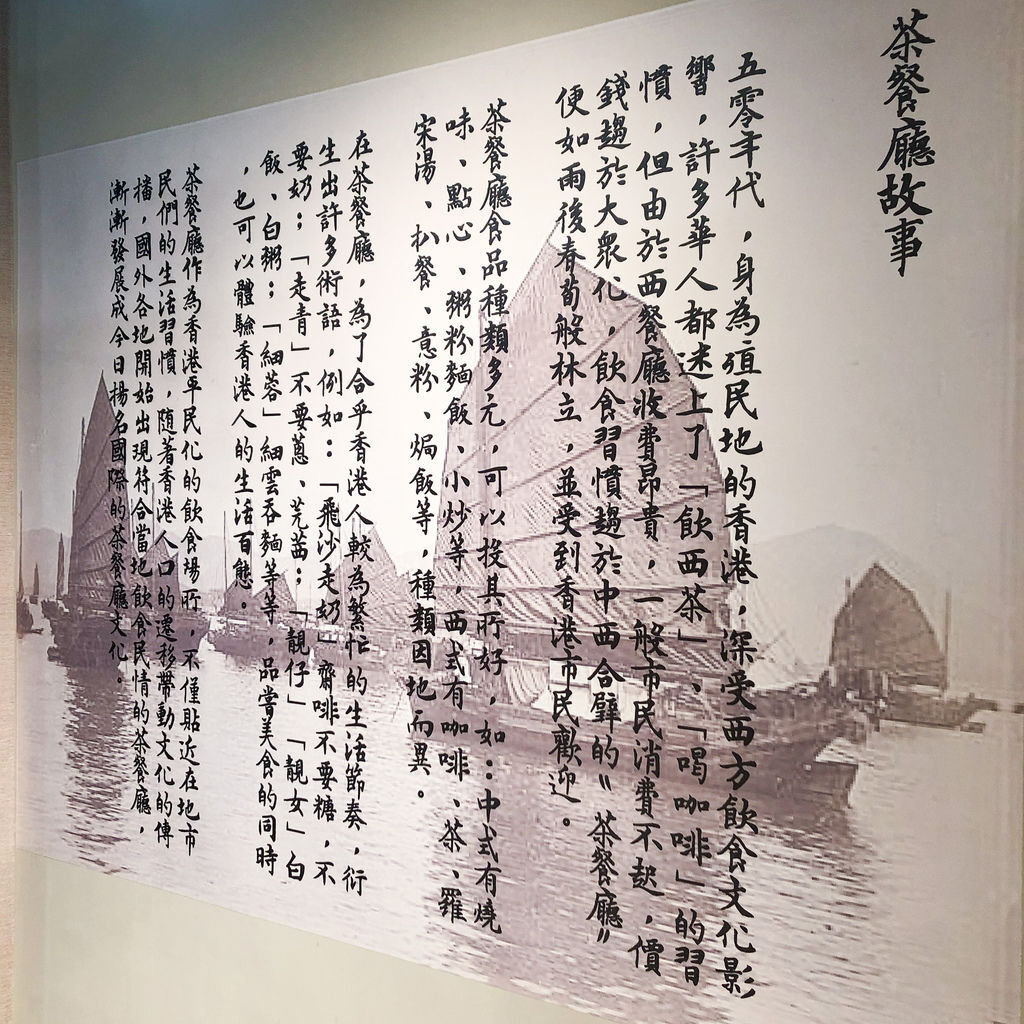 茶餐廳故事
五零年代，身為殖民地的香港，深受西方飲食文化影
響，許多華人都迷上了「飲西茶」、「喝咖啡」的習
慣，但由於西餐廳收費昂貴，一般市民消費不起，價
錢趨於大眾化，飲食習慣趨於中西合璧的〝茶餐廳〞
便如雨後春荀般林立，並受到香港市民歡迎。
茶餐廳食品種類多元，可以投其所好，如：中式有燒
味、點心、粥粉麵飯、小炒等，西式有咖啡、茶、羅
宋湯、扒餐、意粉、焗飯等，種類因地而異。
在茶餐廳，為了合乎香港人較為繁忙的生活節奏，衍
生出許多術語，例如：「飛沙走奶」齋啡不要糖，不
要奶；「走青」不要蔥、芫茜；「靚仔」「靚女」白
飯、白粥；「細蓉」細雲吞麵等等，品嘗美食的同時
，也可以體驗香港人的生活百態。
茶餐廳作為香港平民化的飲食場所，不僅貼近在地市
民們的生活習慣，隨著香港人口的遷移帶動文化的傳
播，國外各地開始出現符合當地飲食民情的茶餐廳，
漸漸發展成今日揚名國際的茶餐廳文化。